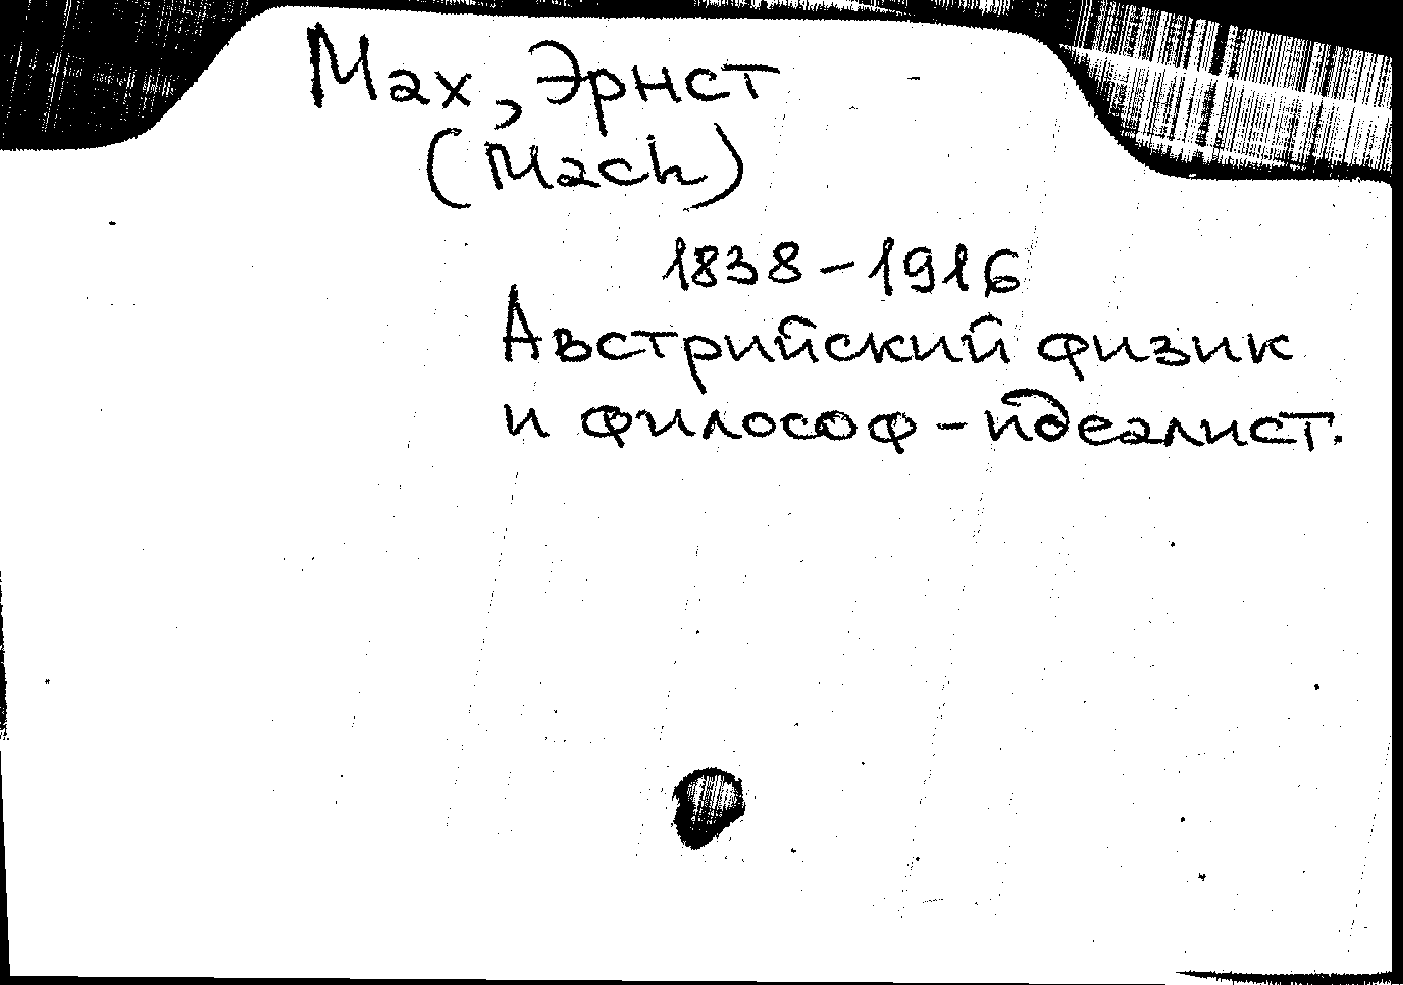 Мах, Эрнст
(Mach)
1838-1916
Австрийский физик
и философ-идеалист.